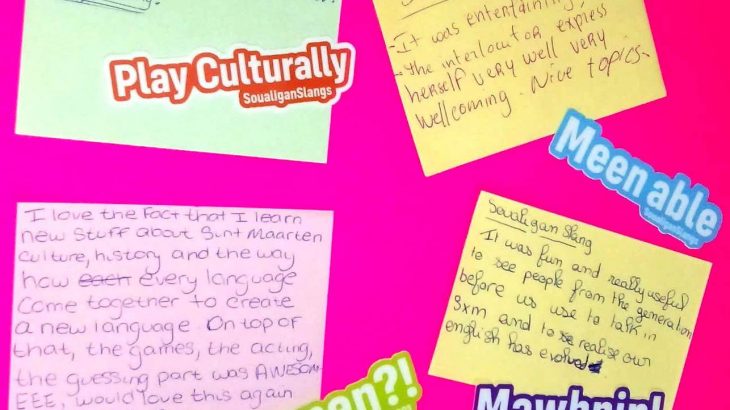 Play Culturally
SoualiganSlangs
- It was entertaining,
- The interloutor express
herself very well very
wellcoming. Nice topics.
Meen able
SoualiganSlangs
I love the Fact that I learn
new stuff about Sint Maarten
culture, history and the way
how each every language
come together to create
a new language. On top of
that, the games, the acting,
the guessing part was AWESOM
EEE, would love this again
Soualigan Slang
It was fun and really useful
to see people from the generation
before us use to talk in
Sxm and to realise our
english has evolved
een?!
SoualiganSlangs
Mawhnin!